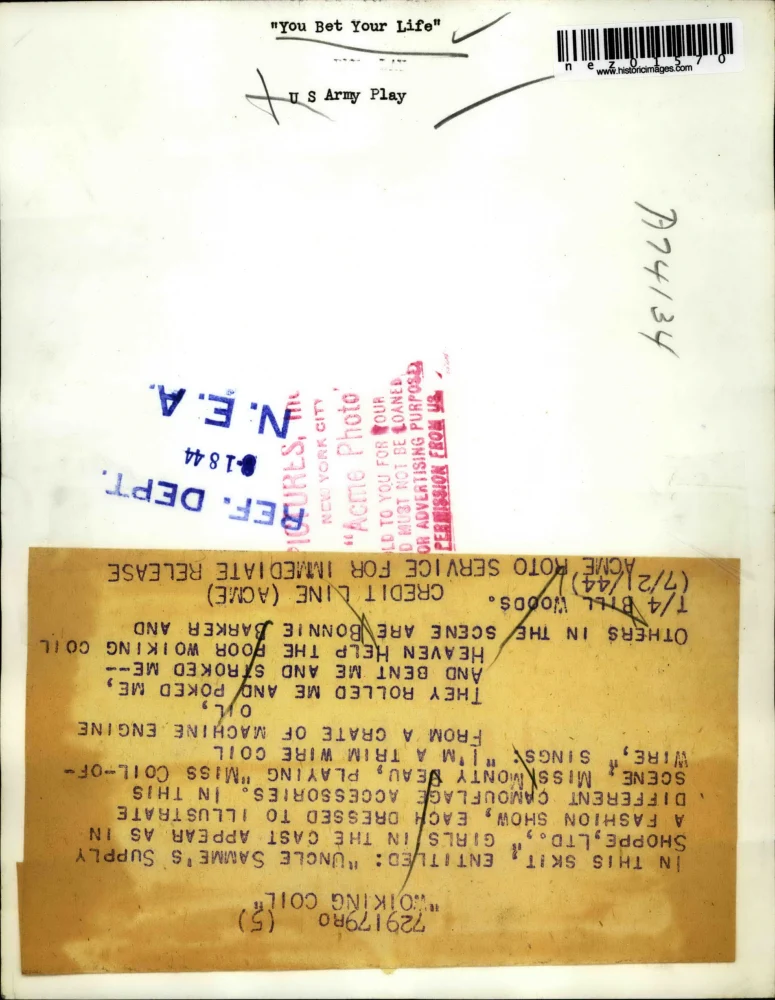 "You Bet Your Life"
U S Army Play
nez01570
www.historicimages.com
A74134
N.E.A.
8-18 44
REF. DEPT.
PICTURES, Inc
NEW YORK CITY
"Acme Photo"
LD TO YOU FOR YOUR
D MUST NOT BE LOANED
OR ADVERTISING PURPOSES
PERMISSION FROM US.
729179RO (5)
"WOIKING COIL"
IN THIS SKIT, ENTITLED: "UNCLE SAMME'S SUPPLY
SHOPPE, LTD.," GIRLS IN THE CAST APPEAR AS IN
A FASHION SHOW, EACH DRESSED TO ILLUSTRATE
DIFFERENT CAMOUFLAGE ACCESSORIES. IN THIS
SCENE, MISS MONTY BEAU, PLAYING "MISS COIL-OF-
WIRE," SINGS: "I'M A TRIM WIRE COIL
FROM A CRATE OF MACHINE ENGINE
OIL,
THEY ROLLED ME AND POKED ME,
AND BENT ME AND STROKED ME--
HEAVEN HELP THE POOR WOIKING COIL
OTHERS IN THE SCENE ARE BONNIE BARKER AND
T/4 BILL WOODS.
CREDIT LINE (ACME)
(7/21/44)
ACME ROTO SERVICE FOR IMMEDIATE RELEASE